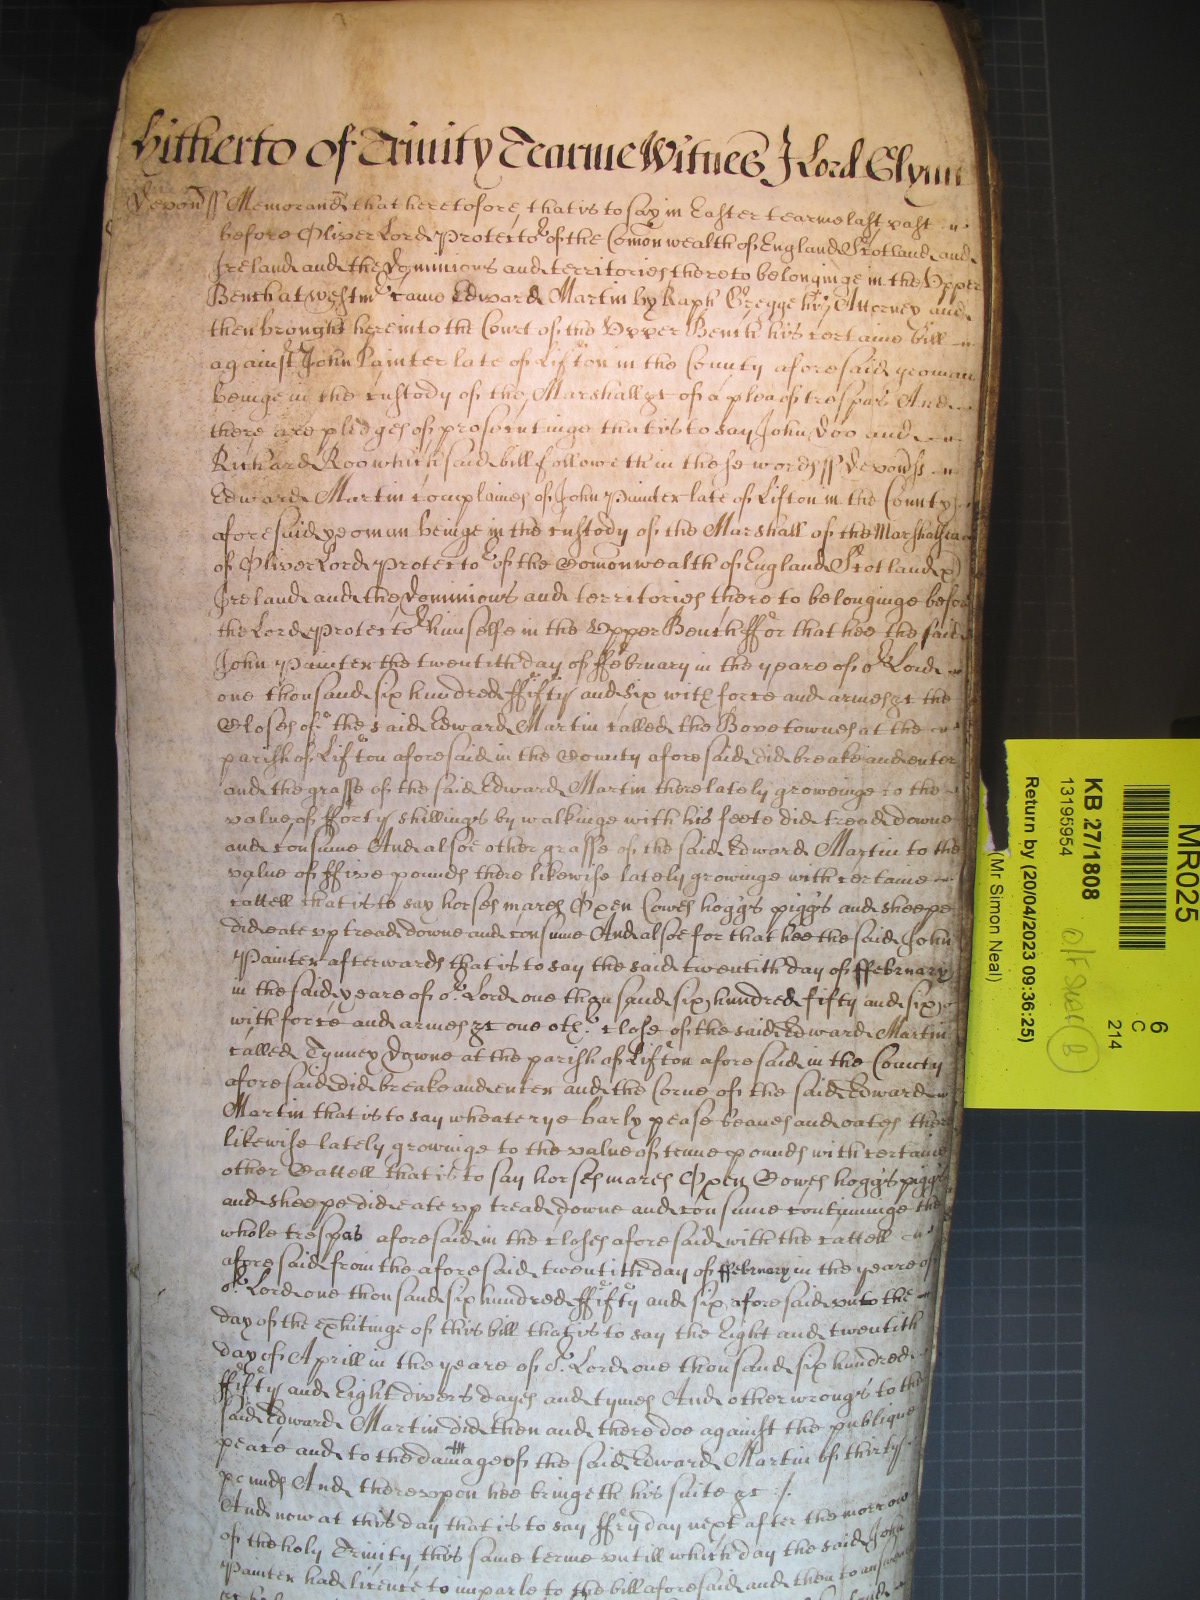 hitherto of Trinity Tearme Witnes J Lord Glynn
Devon ss Memorand that heretofore that is to say in Easter tearme last past
before Oliver Lord Protector of the Comonwealth of England Scotland and
Ireland and the Dominions and territories thereto belonginge in the Upper
Bench at Westmr came Edward Martin by Raph Gregge his Attorney and
then brought here into the Court of the Upper Bench his certaine bill
against John Painter late of Lifton in the County aforesaid yeoman
beinge in the custody of the Marshall &c of a plea of trespas And
there are pledges of prosecutinge that is to say John Doo and
Richard Roo which said bill followeth in these words ss Devon ss
Edward Martin complaines of John Painter late of Lifton in the County
aforesaid yeoman beinge in the custody of the Marshall of the Marshalsea
of Oliver Lord Protector of the Comonwealth of England Scotland
Ireland and the Dominions and territories there to belonginge before
the Lord Protector himselfe in the Upper Bench ffor that hee the said
John Painter the twentith day of ffebruary in the yeare of or Lord
one thousand six hundred ffifty and six with force and armes &c the
Closes of the said Edward Martin called the Bovetownes at the
parish of Lifton aforesaid in the County aforesaid did breake and enter
and the grasse of the said Edward Martin there lately groweinge to the
value of fforty shillings by walkinge with his feete did tread downe
and consume And alsoe other grasse of the said Edward Martin to the
value of ffive pounds there likewise lately growinge with certaine
cattell that is to say horses mares Oxen Cowes hoggs piggs and sheepe
did eate up tread downe and consume And alsoe for that hee the said John
Painter afterwards that is to say the said twentith day of ffebruary
in the said yeare of or Lord one thousand six hundred fifty and six
with force and armes &c one othr close of the said Edward Martin
called Tynney Downe at the parish of Lifton aforesaid in the County
aforesaid did breake and enter and the Corne of the said Edward
Martin that is to say wheate rye barly pease beanes and oates there
likewise lately growinge to the value of tenne pounds with certaine
other Cattell that is to say horses mares Oxen Cowes hoggs piggs
and sheepe did eate up tread downe and consume continuinge the
whole trespas aforesaid in the closes aforesaid with the cattell
aforesaid from the aforesaid twentith day of ffebruary in the yeare of
or Lord one thousand six hundred ffifty and six aforesaid unto the
day of the exhitinge of this bill that is to say the Eight and twentith
day of Aprill in the yeare of or Lord one thousand six hundred
ffifty and Eight divers dayes and tymes And other wrongs to the
said Edward Martin did then and there doe against the publique
peace and to the damage of the said Edward Martin of thirty
pounds And thereupon hee bringeth his suite &c
And now at this day that is to say ffryday next after the morrow
of the holy Trinity this same terme untill which day the said John
Painter had licence to imparle to the bill aforesaid and then to answere
MR025
6
C
214
KB 27/1808
13195954
Return by (20/04/2023 09:36:25)
(Mr Simon Neal)